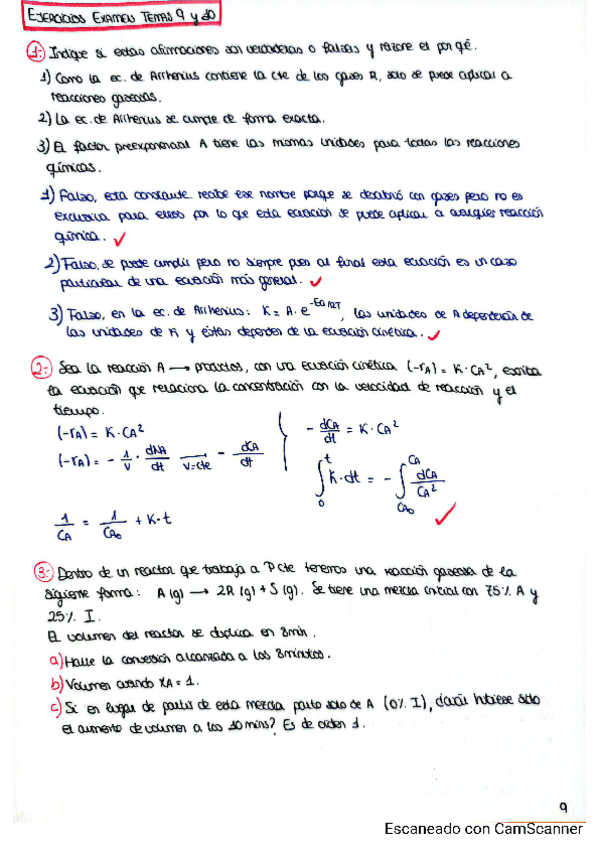 EJERCICIOS EXAMEN TEMAS 9 y 10
1- Indique si estas afirmaciones son verdaderas o falsas y razone el porqé.
1) Como la ec. de Arrhenius contiene la cte de los gases R, solo se puede aplicar a
reacciones gaseosas.
2) La ec. de Arrhenius se cumple de forma exacta.
3) El factor preexponencial A tiene las mismas unidades para todas las reacciones
químicas.
1) Falso, esta constante recibe ese nombre porqe se descubrió con gases pero no es
exclusiva para ellos por lo que esta ecuación se puede aplicar a cualquier reacción
química. ✓
2) Falso, se puede cumplir pero no siempre pues al final esta ecuación es un caso
particular de una ecuación más general. ✓
3) Falso, en la ec. de Arrhenius: K = A · e^-Ea/RT, las unidades de A dependerán de
las unidades de K y éstas dependen de la ecuación cinética. ✓
2- Sea la reacción A → productos, con una ecuación cinética (-rA) = K · CA², escriba
la ecuación que relaciona la concentración con la velocidad de reacción y el
tiempo.
(-rA) = K · CA²
(-rA) = - 1/V · dNA/dt →V=cte - dCA/dt
- dCA/dt = K · CA²
∫0^t K · dt = - ∫CA0^CA dCA/CA²
1/CA = 1/CA0 + K · t ✓
3- Dentro de un reactor que trabaja a P cte tenemos una reacción gaseosa de la
siguiente forma: A (g) → 2R (g) + S (g). Se tiene una mezcla inicial con 75% A y
25% I.
El volumen del reactor se duplica en 8min.
a) Halle la conversión alcanzada a los 8 minutos.
b) Volumen cuando XA = 1.
c) Si en lugar de partir de esta mezcla parto solo de A (0% I), ¿cuál hubiese sido
el aumento de volumen a los 10 mins? Es de orden 1.
9
Escaneado con CamScanner